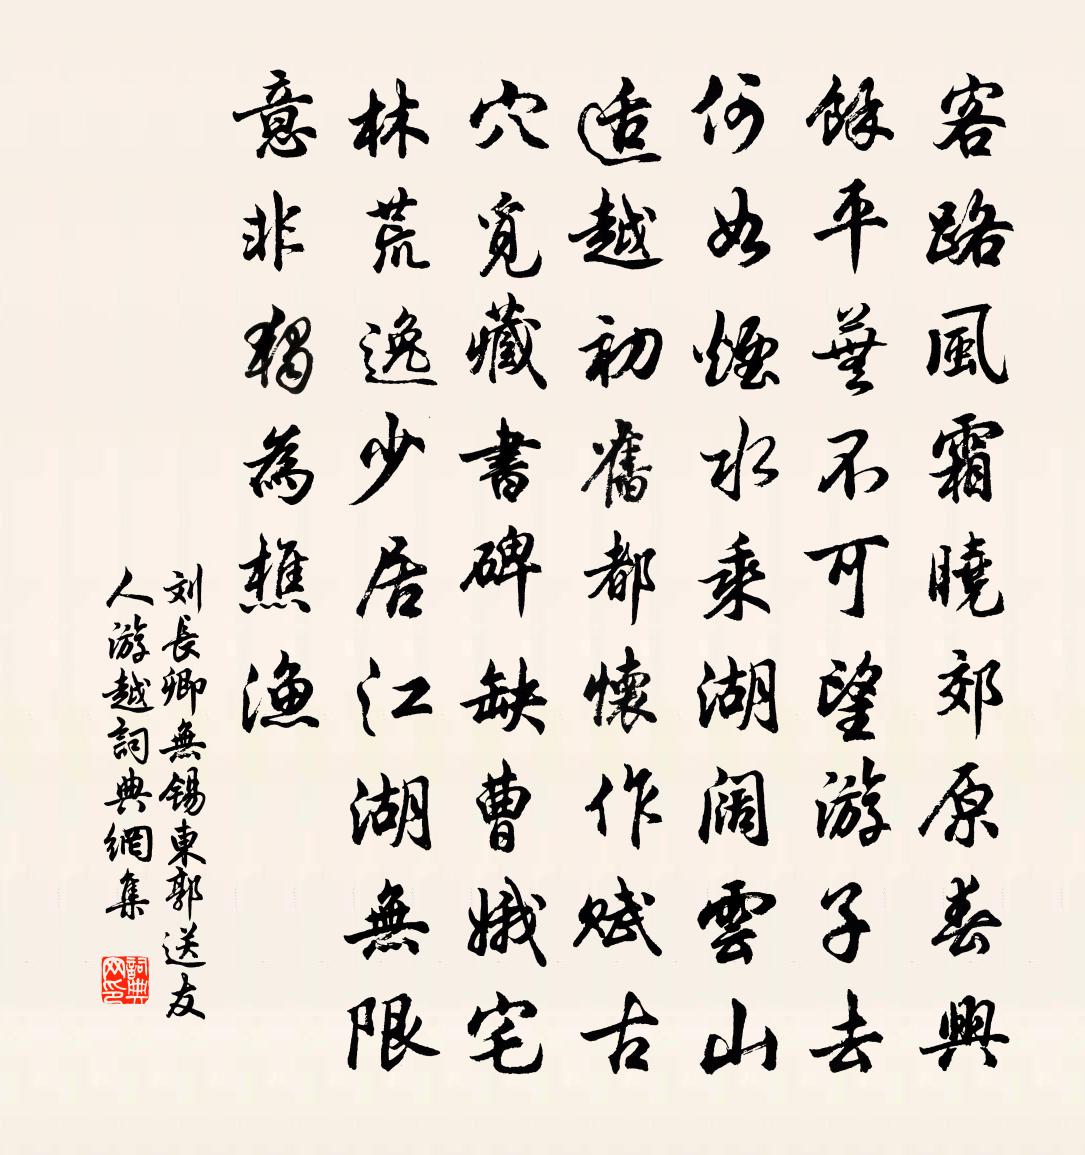 客路風霜曉郊原春興
餘平蕪不可望游子去
何如煙水乘湖闊雲山
适越初舊都懷作賦古
穴覓藏書碑缺曹娥宅
林荒逸少居江湖無限
意非獨為樵漁
刘長卿無錫東郭送友
人游越詞典網集
詞典网印